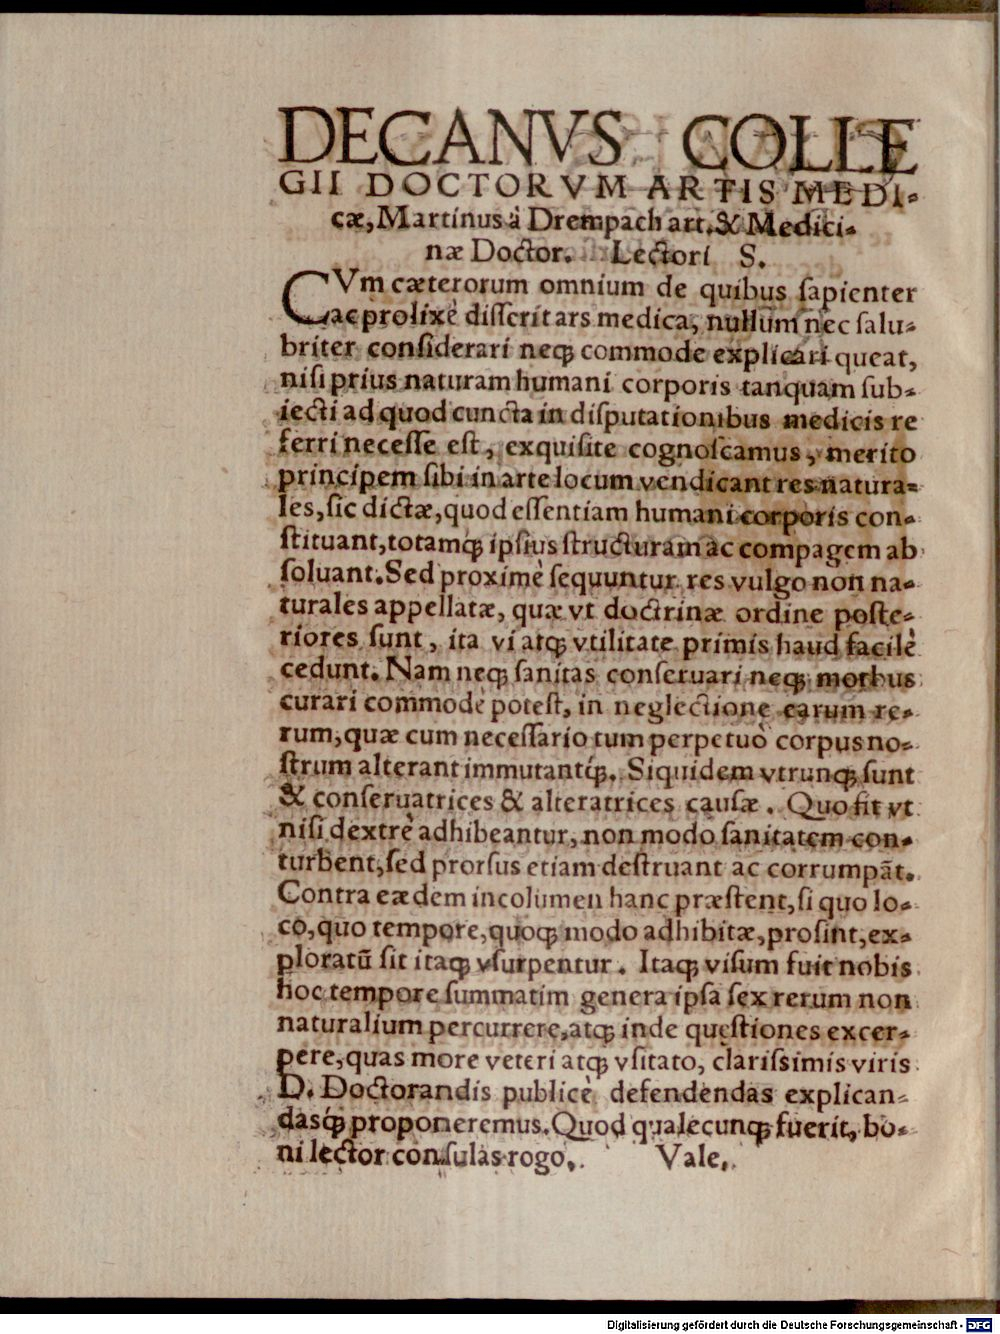 DECANVS COLLE
GII DOCTORVM ARTIS MEDI-
cæ, Martinus à Drempach art. & Medici-
næ Doctor. Lectori S.
CVm cæterorum omnium de quibus ſapienter
ac prolixè diſſerit ars medica, nullum nec ſalu-
briter conſiderari neqꝫ commode explicari queat,
niſi prius naturam humani corporis tanquam ſub-
iecti ad quod cuncta in diſputationibus medicis re
ferri neceſſe eſt, exquiſite cognoſcamus, merito
principem ſibi in arte locum vendicant res natura-
les, ſic dictæ, quod eſſentiam humani corporis con-
ſtituant, totamqꝫ ipſius ſtructuram ac compagem ab
ſoluant. Sed proximè ſequuntur res vulgo non na-
turales appellatæ, quæ vt doctrinæ ordine poſte-
riores ſunt, ita vi atqꝫ vtilitate primis haud facilè
cedunt. Nam neqꝫ ſanitas conſeruari neqꝫ morbus
curari commodè poteſt, in neglectione earum re-
rum, quæ cum neceſſario tum perpetuò corpus no-
ſtrum alterant immutantqꝫ. Siquidem vtrunqꝫ ſunt
& conſeruatrices & alteratrices cauſæ. Quo fit vt
niſi dextrè adhibeantur, non modo ſanitatem con-
turbent, ſed prorſus etiam deſtruant ac corrumpãt.
Contra eædem incolumen hanc præſtent, ſi quo lo-
co, quo tempore, quoqꝫ modo adhibitæ, proſint, ex-
ploratũ ſit itaqꝫ vſurpentur. Itaqꝫ viſum fuit nobis
hoc tempore ſummatim genera ipſa ſex rerum non
naturalium percurrere, atqꝫ inde quęſtiones excer-
pere, quas more veteri atqꝫ vſitato, clariſsimis viris
D. Doctorandis publicè defendendas explican-
dasqꝫ proponeremus. Quod qualecunqꝫ fuerit, bo-
ni lector conſulas rogo,. Vale,.
Digitalisierung gefördert durch die Deutsche Forschungsgemeinschaft - DFG